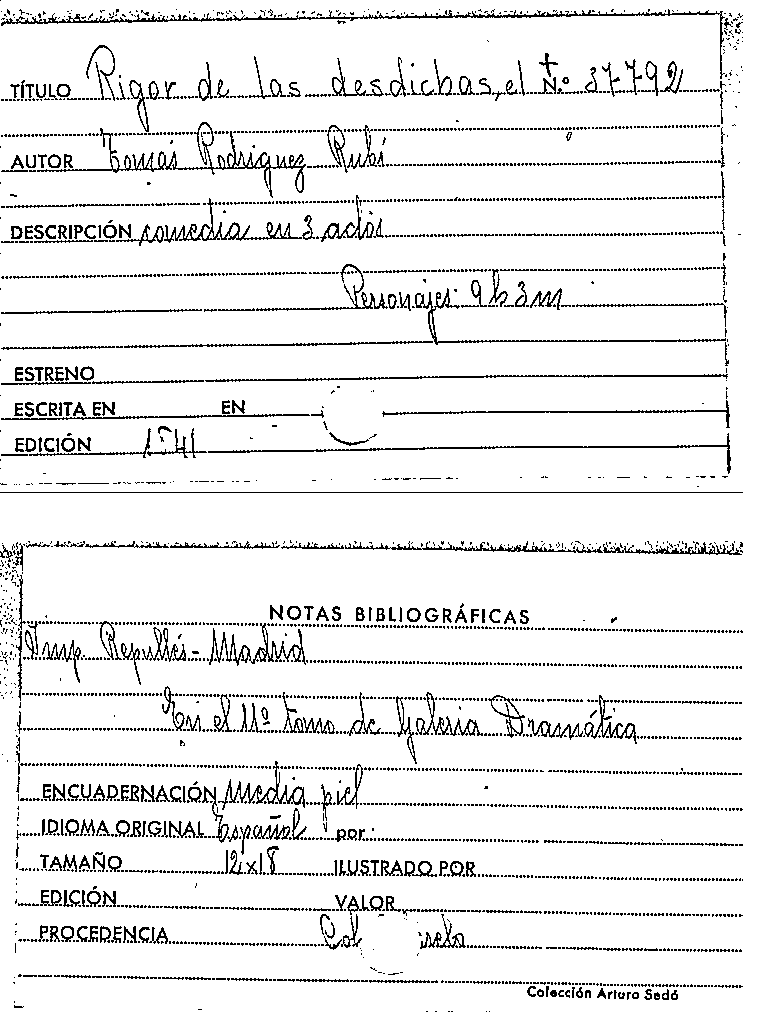 TÍTULO Rigor de las desdichas, el N.º 37-792
AUTOR Tomás Rodriguez Rubí
DESCRIPCIÓN comedia en 3 actos
Personajes: 9 h 3 m
ESTRENO
ESCRITA EN EN
EDICIÓN 1841
NOTAS BIBLIOGRÁFICAS
Imp. Repullés - Madrid
En el 11º tomo de Galeria Dramática
ENCUADERNACIÓN Media piel
IDIOMA ORIGINAL Español por:
TAMAÑO 12x18 ILUSTRADO POR
EDICIÓN VALOR
PROCEDENCIA
Colección Arturo Sedó